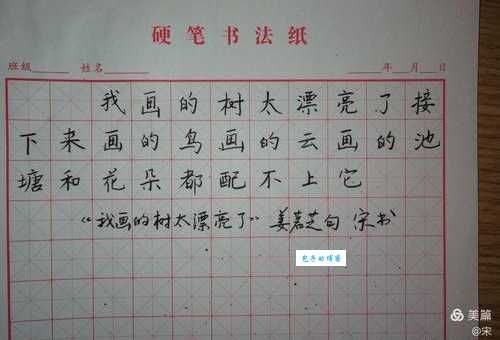 硬笔书法纸
班级 姓名 年 月 日
我画的树太漂亮了接
下来画的鸟画的云画的池
塘和花朵都配不上它
“我画的树太漂亮了” 姜茗芝句 宋书
包子的博客
美篇
@宋